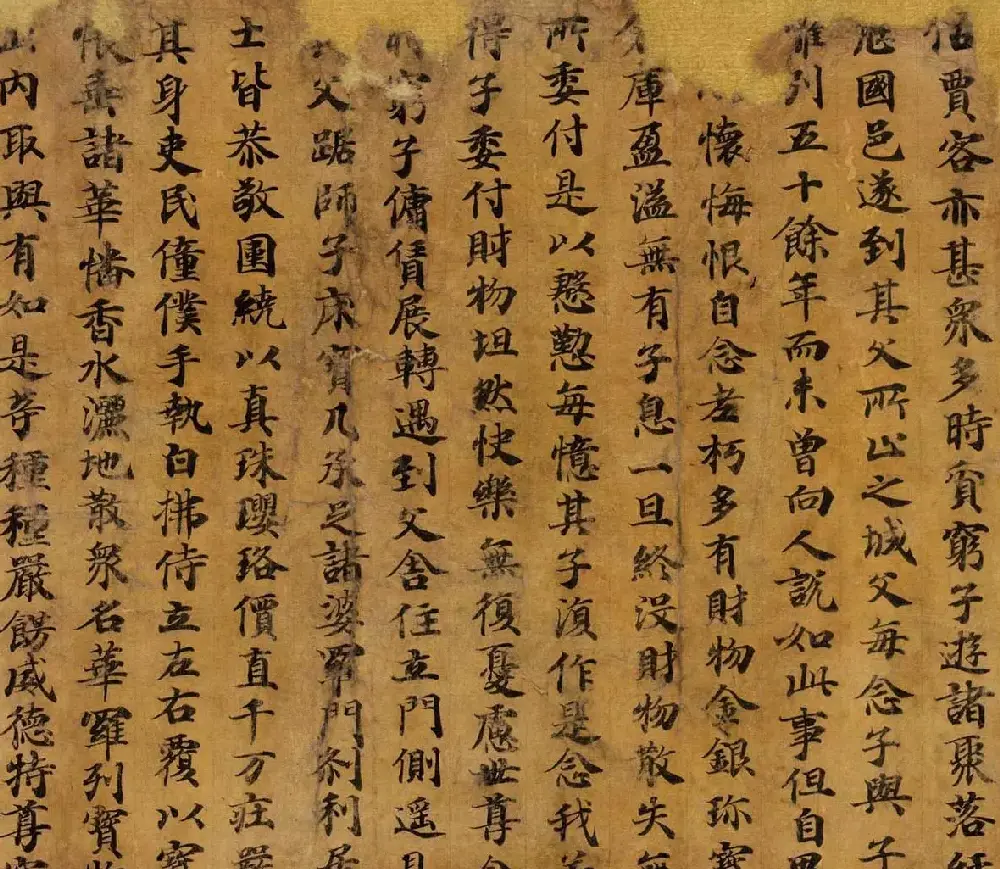 估賈客亦甚衆多時貧窮子遊諸聚落
國邑遂到其父所止之城父每念子與子
離別五十餘年而未曾向人說如此事但自思
懷悔恨自念老朽多有財物金銀珎寶
庫盈溢無有子息一旦終沒財物散失無
所委付是以慇懃每憶其子復作是念我
得子委付財物坦然快樂無復憂慮世尊
窮子傭賃展轉遇到父舍住立門側遥見
父踞師子床寶几承足諸婆羅門刹利居
士皆恭敬圍繞以真珠瓔珞價直千万莊嚴
其身吏民僮僕手執白拂侍立左右覆以寶
帳垂諸華幡香水灑地散衆名華羅列寶物
出内取與有如是等種種嚴餝威德特尊